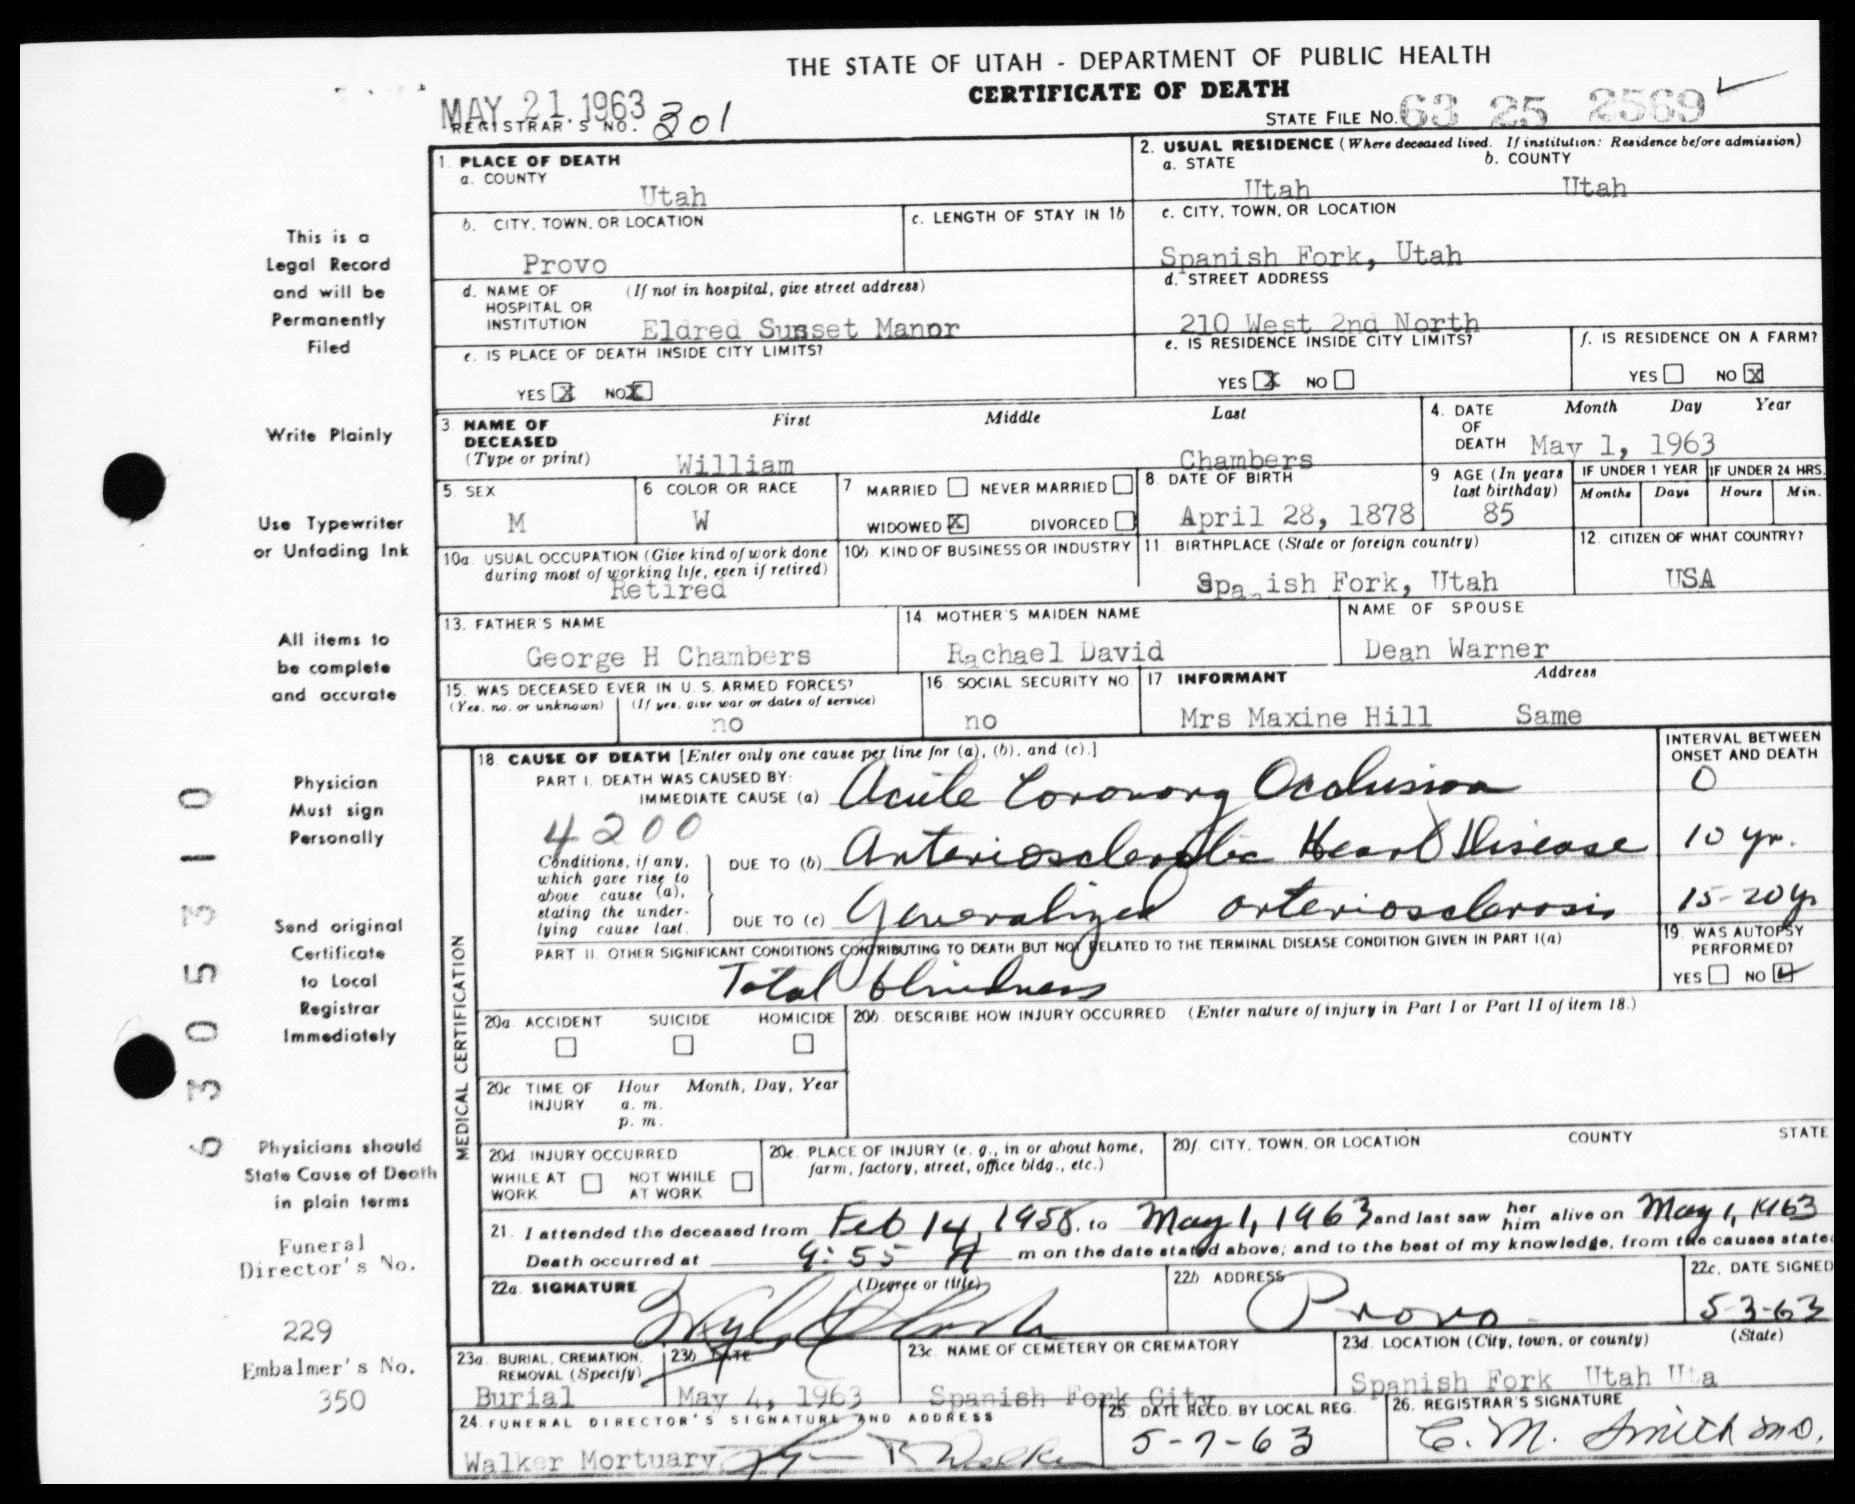 THE STATE OF UTAH - DEPARTMENT OF PUBLIC HEALTH
CERTIFICATE OF DEATH
MAY 21.1963
REGISTRAR'S NO. 301
STATE FILE No. 63 25 2569
1. PLACE OF DEATH
a. COUNTY
Utah
2. USUAL RESIDENCE (Where deceased lived. If institution: Residence before admission)
a. STATE b. COUNTY
Utah Utah
b. CITY, TOWN, OR LOCATION
Provo
c. LENGTH OF STAY IN 1b
c. CITY, TOWN, OR LOCATION
Spanish Fork, Utah
d. NAME OF HOSPITAL OR INSTITUTION (If not in hospital, give street address)
Eldred Sunset Manor
d. STREET ADDRESS
210 West 2nd North
e. IS PLACE OF DEATH INSIDE CITY LIMITS?
YES X NO X
e. IS RESIDENCE INSIDE CITY LIMITS?
YES X NO
f. IS RESIDENCE ON A FARM?
YES NO X
3. NAME OF DECEASED (Type or print)
First Middle Last
William Chambers
4. DATE OF DEATH
Month Day Year
May 1, 1963
5. SEX
M
6 COLOR OR RACE
W
7 MARRIED NEVER MARRIED
WIDOWED X DIVORCED
8. DATE OF BIRTH
April 28, 1878
9 AGE (In years last birthday)
85
IF UNDER 1 YEAR IF UNDER 24 HRS.
Months Days Hours Min.
10a. USUAL OCCUPATION (Give kind of work done during most of working life, even if retired)
Retired
10b. KIND OF BUSINESS OR INDUSTRY
11. BIRTHPLACE (State or foreign country)
Spa ish Fork, Utah
12. CITIZEN OF WHAT COUNTRY?
USA
13. FATHER'S NAME
George H Chambers
14. MOTHER'S MAIDEN NAME
Rachael David
NAME OF SPOUSE
Dean Warner
15. WAS DECEASED EVER IN U. S. ARMED FORCES?
(Yes, no, or unknown) (If yes, give war or dates of service)
no
16. SOCIAL SECURITY NO.
no
17 INFORMANT Address
Mrs Maxine Hill Same
MEDICAL CERTIFICATION
18. CAUSE OF DEATH [Enter only one cause per line for (a), (b), and (c).]
INTERVAL BETWEEN ONSET AND DEATH
PART I. DEATH WAS CAUSED BY:
IMMEDIATE CAUSE (a) Acute Coronary Occlusion 0
4200
Conditions, if any, which gave rise to above cause (a), stating the underlying cause last.
DUE TO (b) Arteriosclerotic Heart Disease 10 yr.
DUE TO (c) Generalized arteriosclerosis 15-20 yr
PART II. OTHER SIGNIFICANT CONDITIONS CONTRIBUTING TO DEATH BUT NOT RELATED TO THE TERMINAL DISEASE CONDITION GIVEN IN PART I(a)
Total blindness
19. WAS AUTOPSY PERFORMED?
YES NO
20a. ACCIDENT SUICIDE HOMICIDE
20b. DESCRIBE HOW INJURY OCCURRED (Enter nature of injury in Part I or Part II of item 18.)
20c TIME OF INJURY Hour Month, Day, Year
a. m.
p. m.
20d. INJURY OCCURRED
WHILE AT WORK NOT WHILE AT WORK
20e. PLACE OF INJURY (e. g., in or about home, farm, factory, street, office bldg., etc.)
20f. CITY, TOWN, OR LOCATION COUNTY STATE
21. I attended the deceased from Feb 14, 1958, to May 1, 1963 and last saw her him alive on May 1, 1963
Death occurred at 9:55 A m on the date stated above; and to the best of my knowledge, from the causes state
22a. SIGNATURE (Degree or title)
22b ADDRESS
Provo
22c. DATE SIGNED
5-3-63
23a. BURIAL, CREMATION, REMOVAL (Specify)
Burial
23b DATE
May 4, 1963
23c. NAME OF CEMETERY OR CREMATORY
Spanish Fork City
23d. LOCATION (City, town, or county) (State)
Spanish Fork Utah Uta
24. FUNERAL DIRECTOR'S SIGNATURE AND ADDRESS
Walker Mortuary
25. DATE RECD. BY LOCAL REG.
5-7-63
26. REGISTRAR'S SIGNATURE
C. M. Smith MD.
This is a
Legal Record
and will be
Permanently
Filed
Write Plainly
Use Typewriter
or Unfading Ink
All items to
be complete
and accurate
Physician
Must sign
Personally
Send original
Certificate
to Local
Registrar
Immediately
Physicians should
State Cause of Death
in plain terms
Funeral
Director's No.
229
Embalmer's No.
350
6305310